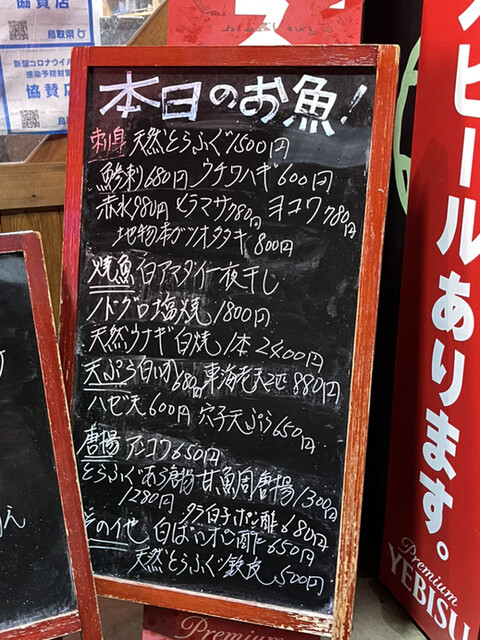 協賛店
鳥取県
新型コロナウイル
感染予防対策
協賛店
鳥
本日のお魚!
刺身 天然とらふぐ1500円
鯵刺680円 ウチワハギ600円
赤水980円 ヒラマサ780円 ヨコワ780円
地物本ガツオタタキ800円
焼魚 白アマダイ一夜干し
ノドグロ塩焼1800円
天然ウナギ白焼1本2400円
天ぷら 白いか680円 車海老天2匹880円
ハゼ天600円 穴子天ぷら650円
唐揚 アンコウ650円
とらふぐあら唐揚1280円 甘鯛唐揚1300円
タラ白子ポン酢680円
その他 白ばいポン酢650円
天然とらふぐ鉄皮500円
ビールあります。
Premium
YEBISU
Premium